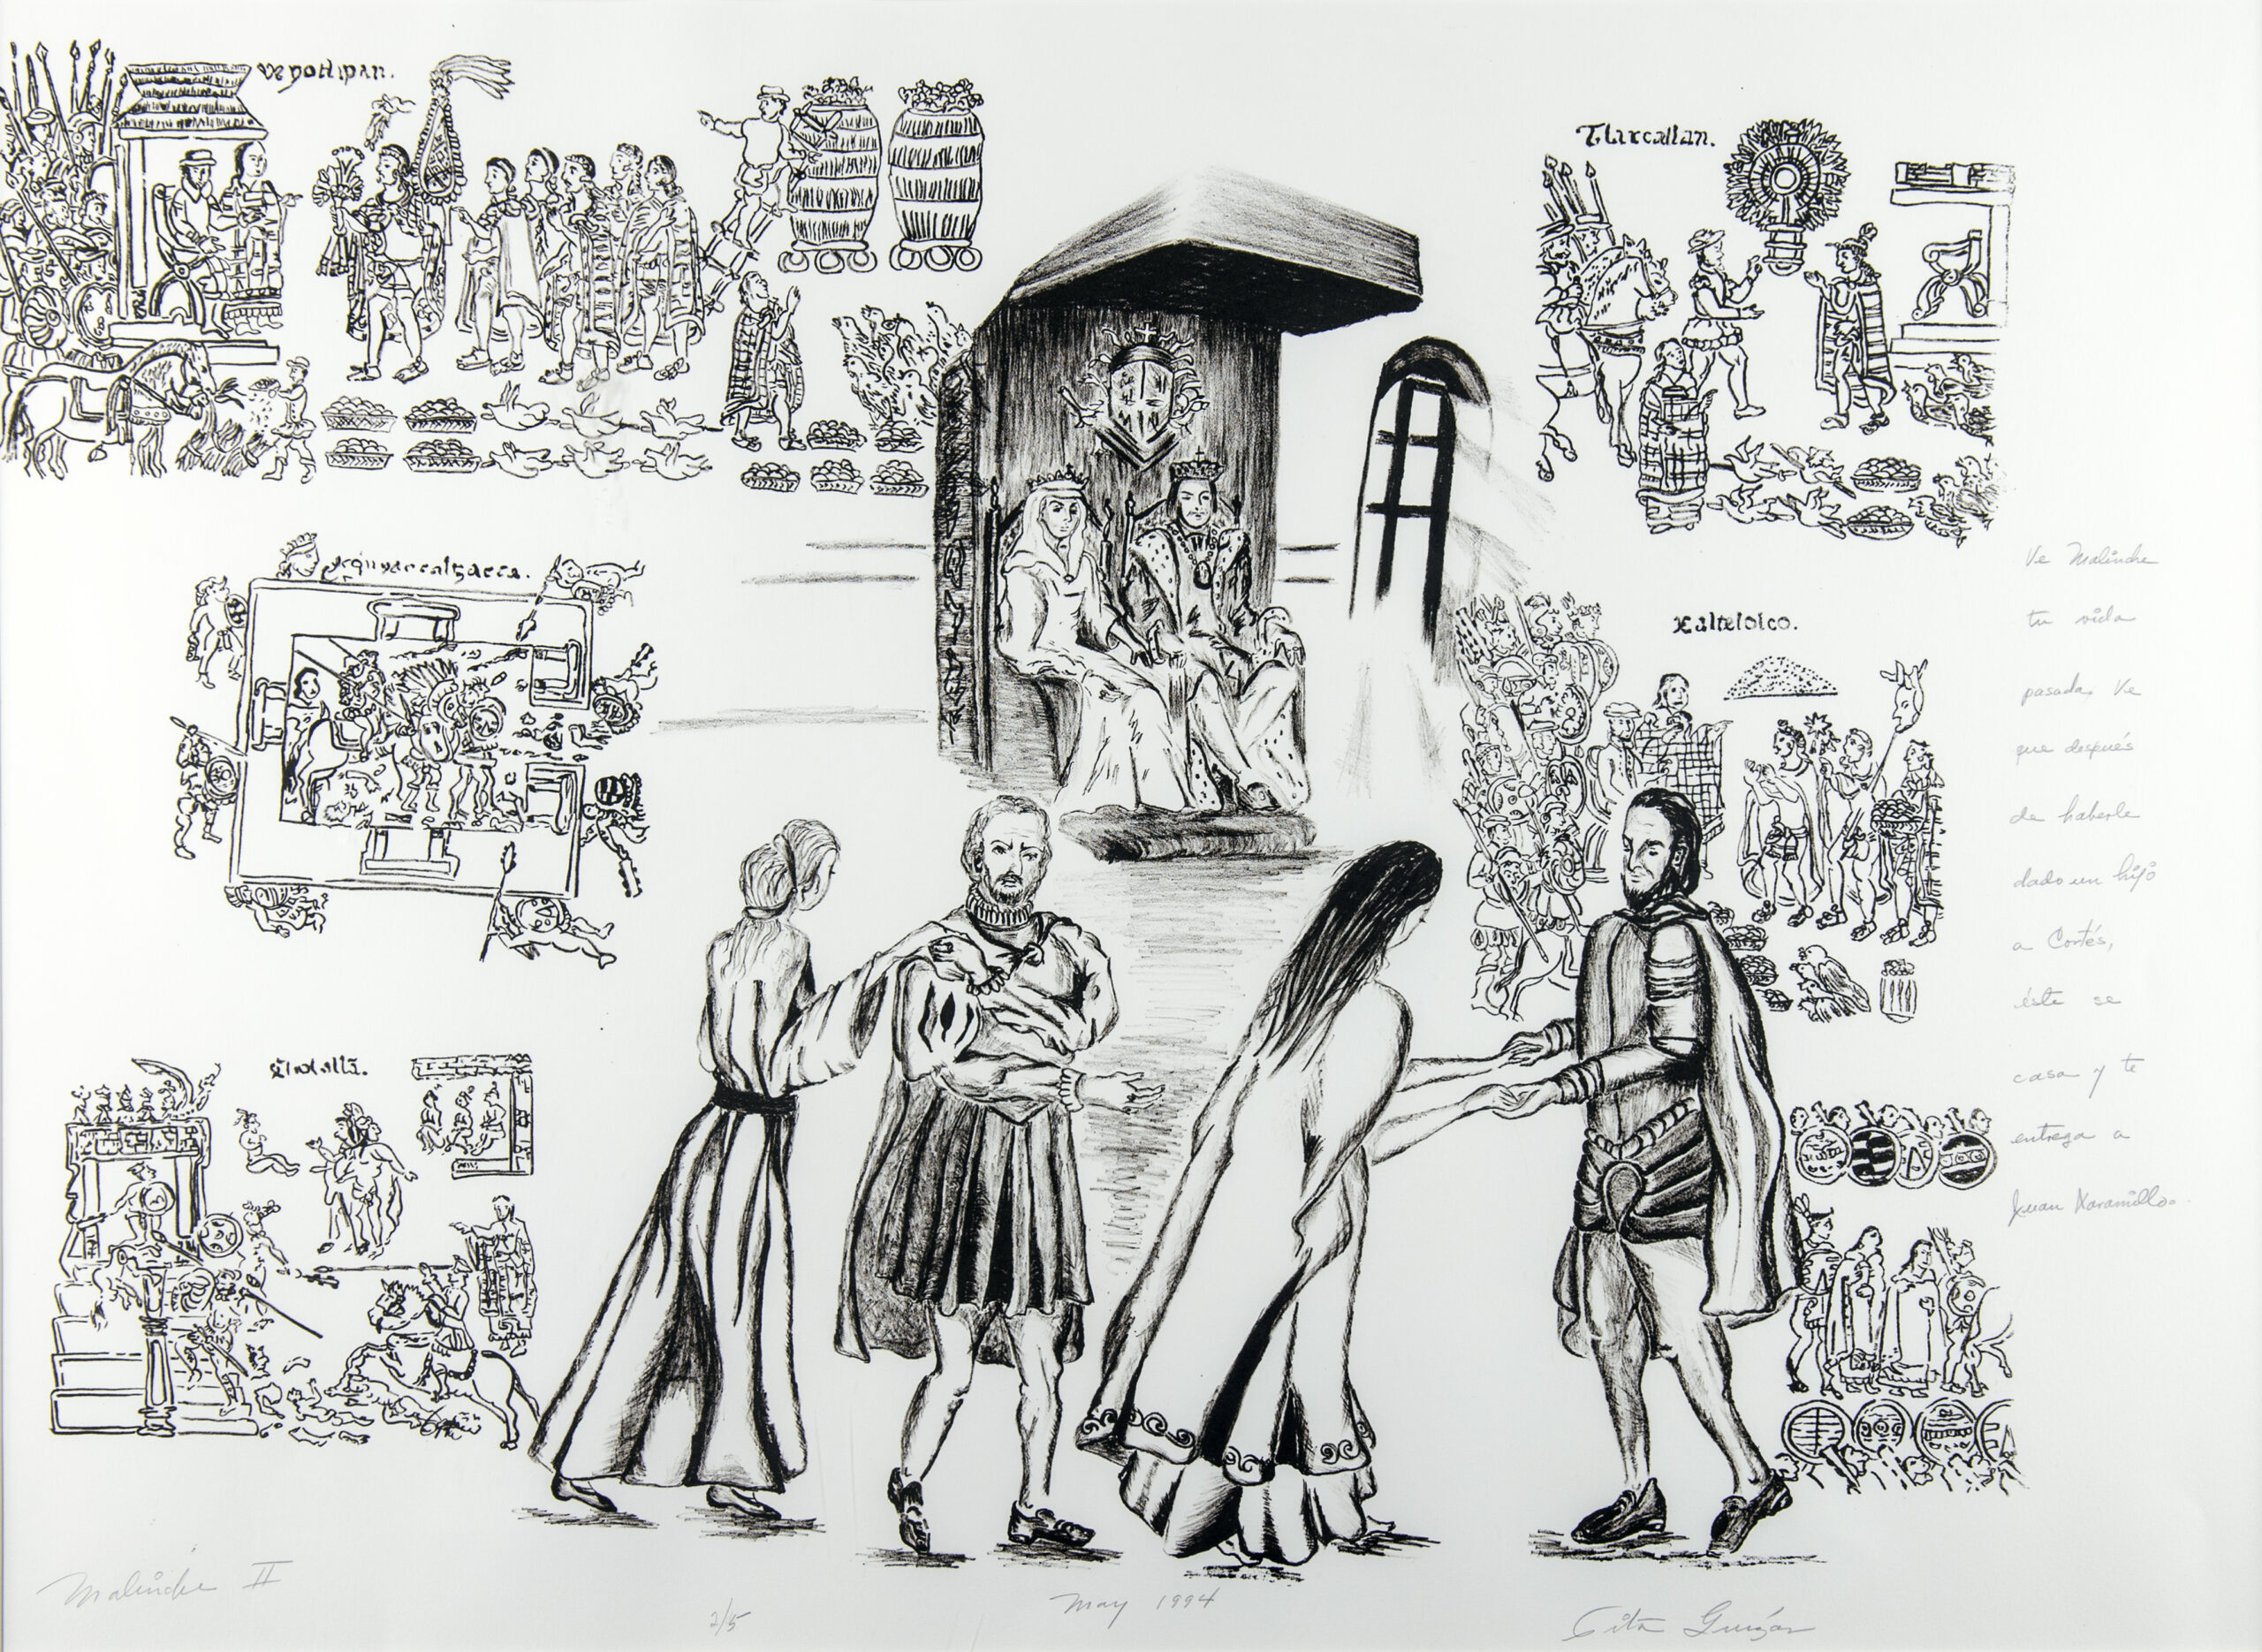 Veyotlipan.
Tlaxcallan.
Xaltelolco.
Ve Malinche
tu vida
pasada, Ve
que después
de haberle
dado un hijo
a Cortés,
éste se
casa y te
entrega a
Juan Xaramillo.
Malinche II
2/5
May 1994